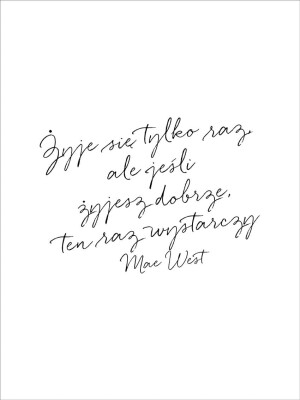 Żyje się tylko raz,
ale jeśli
żyjesz dobrze,
ten raz wystarczy
Mae West